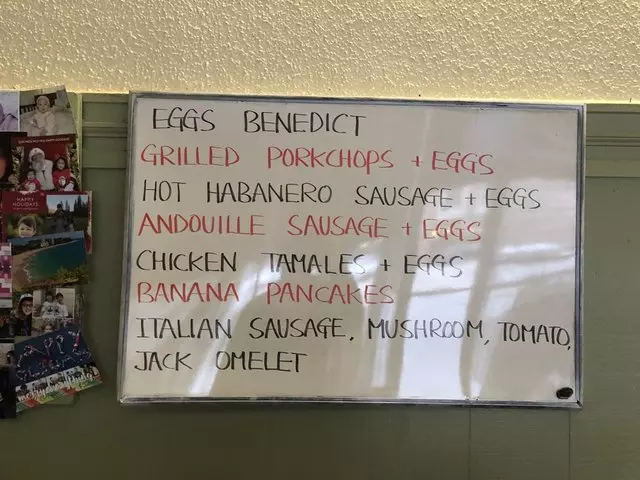 EGGS BENEDICT
GRILLED PORKCHOPS + EGGS
HOT HABANERO SAUSAGE + EGGS
ANDOUILLE SAUSAGE + EGGS
CHICKEN TAMALES + EGGS
BANANA PANCAKES
ITALIAN SAUSAGE, MUSHROOM, TOMATO,
JACK OMELET
HAPPY
HOLIDAYS